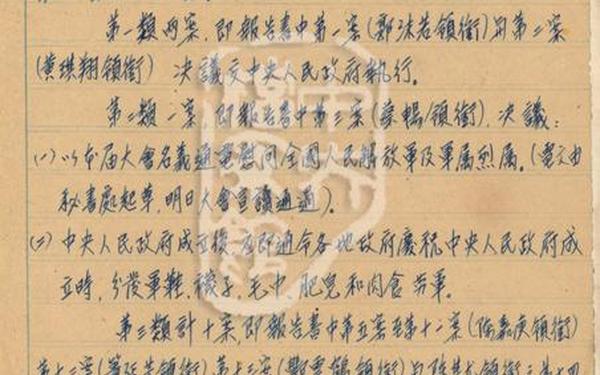 第一類兩案，即報告書中第一案(郭沫若領銜)與第二案
(黃琪翔領銜)　決議交中央人民政府執行。
第二類一案，即報告書中第三案(蔡暢領銜)，決議：
(一)以本届大會名義通電慰问全國人民解放軍及軍属烈属。(電文由
秘書處起草，明日大會宣讀通過)。
(二)中央人民政府成立後，即通令各地政府慶祝中央人民政府成
立時，分發軍鞋、襪子、毛巾、肥皂和肉食劳軍。
第三類計十案，即報告書中第五案至第十二案(陳嘉庚領銜)
第十三案(領銜)第十三案(領銜)與